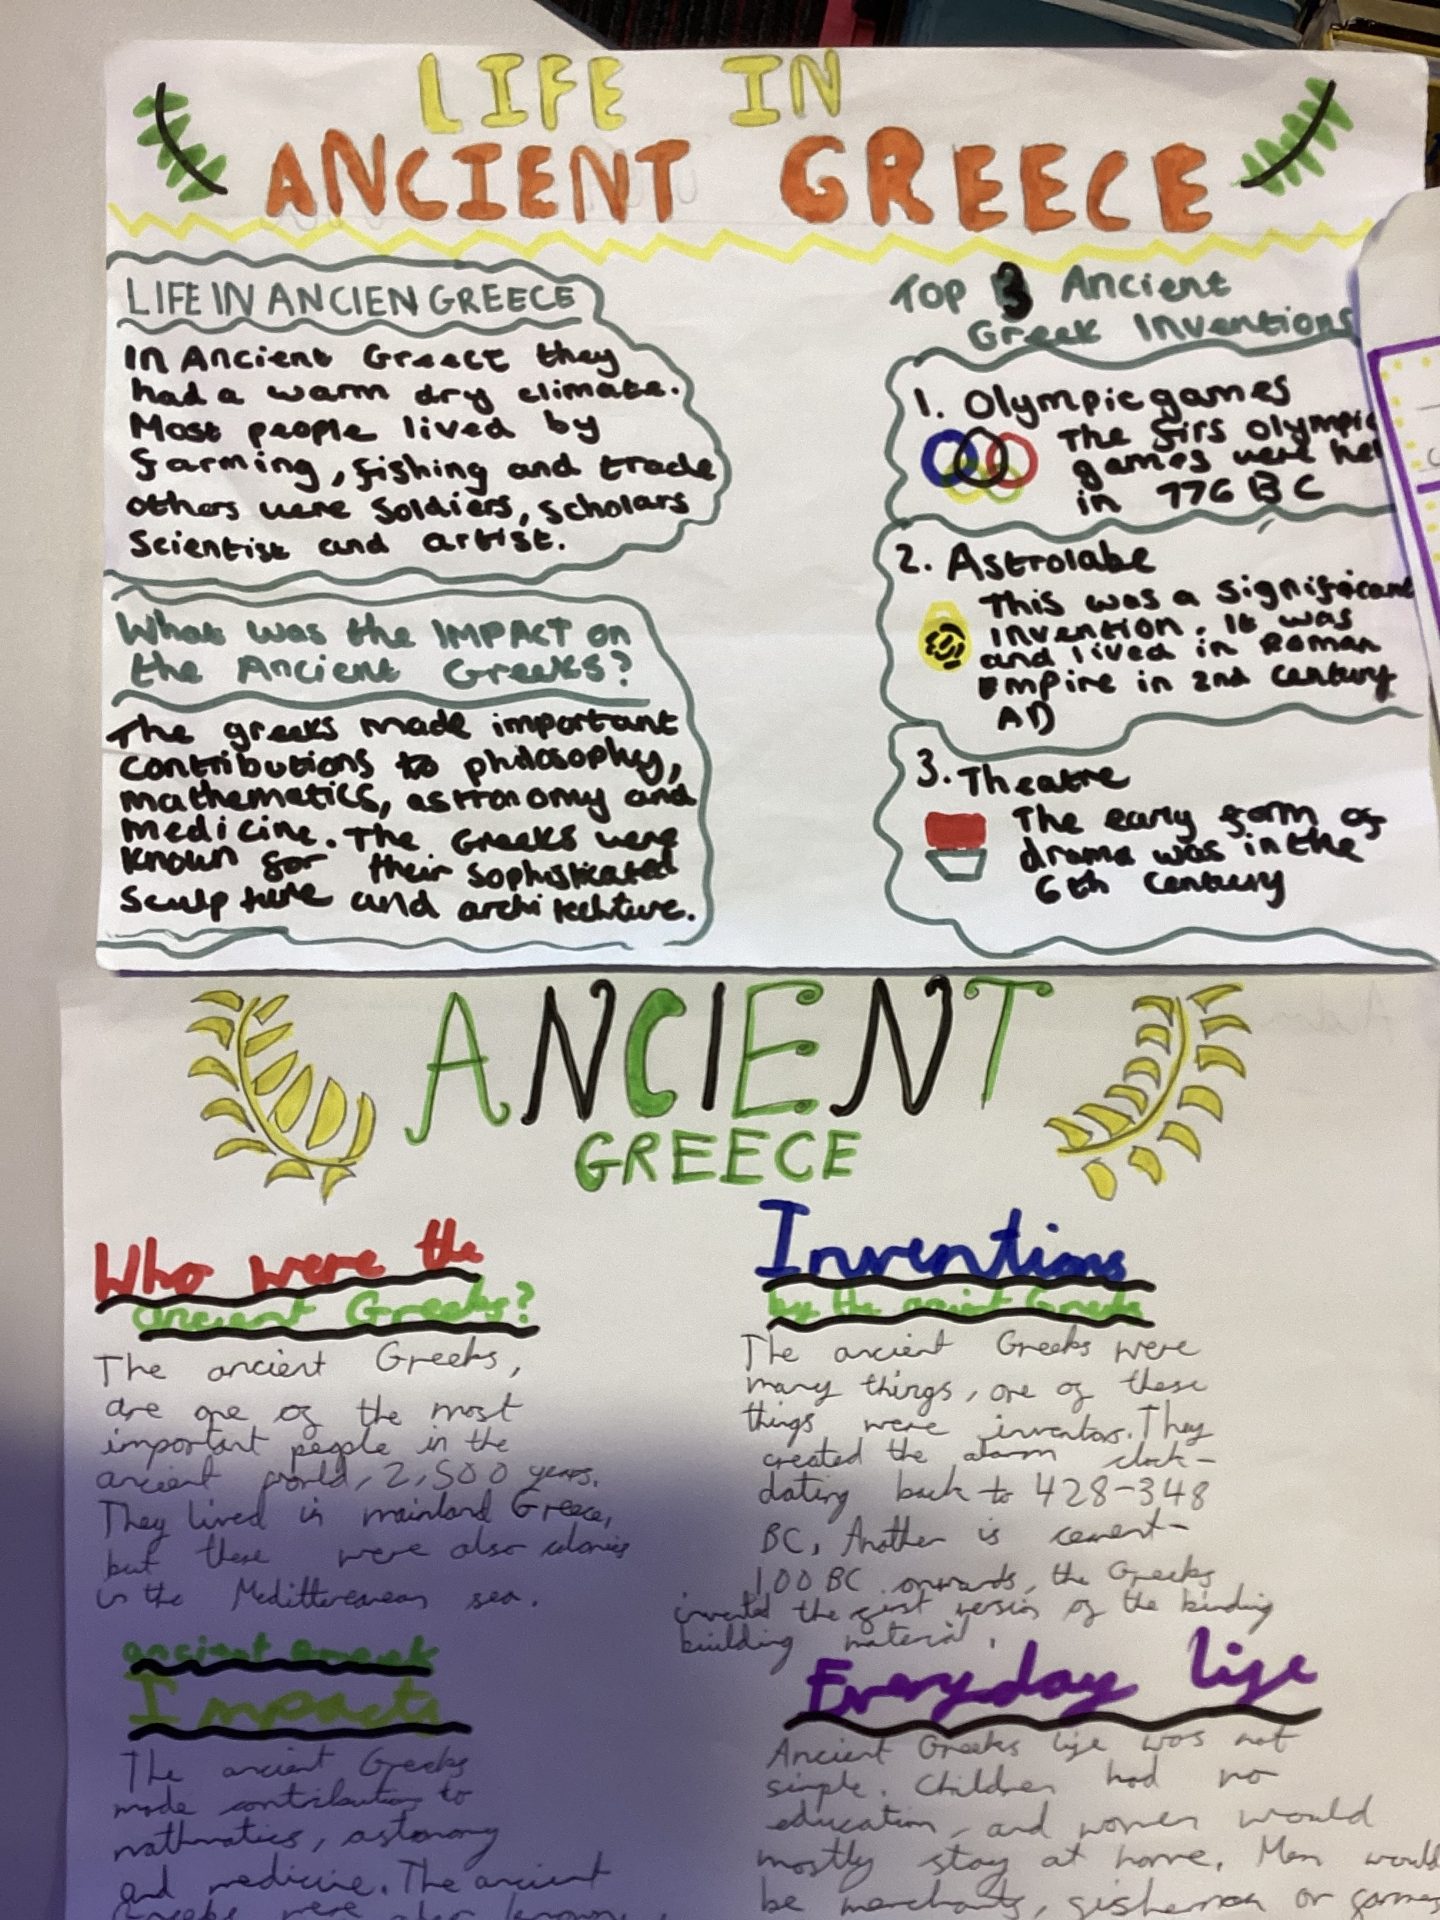 LIFE IN
ANCIENT GREECE
LIFE IN ANCIEN GREECE
In Ancient Greece they
had a warm dry climate.
Most people lived by
farming, fishing and trade
others were soldiers, scholars
Scientist and artist.
What was the IMPACT on
the Ancient Greeks?
The greeks made important
contributions to philosophy,
mathematics, astronomy and
medicine. The Greeks were
known for their sophisticated
sculpture and architechture.
Top 3 Ancient
Greek Inventions
1. Olympic games
The firs Olympic
games were hel
in 776 BC
2. Astrolabe
This was a significant
invention. It was
and lived in Roman
empire in 2nd century
AD
3. Theatre
The early form of
drama was in the
6th century
ANCIENT
GREECE
Who were the
ancient Greeks?
The ancient Greeks,
are one of the most
important people in the
ancient world, 2,500 years.
They lived in mainland Greece,
but there were also colonies
in the Meditterenean sea.
ancient Greek
Impacts
The ancient Greeks
made contributions to
mathmatics, astonomy
and medicine. The ancient
Greeks were also known
Inventions
by the ancient Greeks
The ancient Greeks were
many things, one of these
things were inventors. They
created the alarm clock-
dating back to 428-348
BC, Another is cement-
100 BC onwards, the Greeks
invented the first version of the binding
building material.
Everyday life
Ancient Greeks life was not
simple. Children had no
education, and women would
mostly stay at home. Men would
be merchants, fishermen or